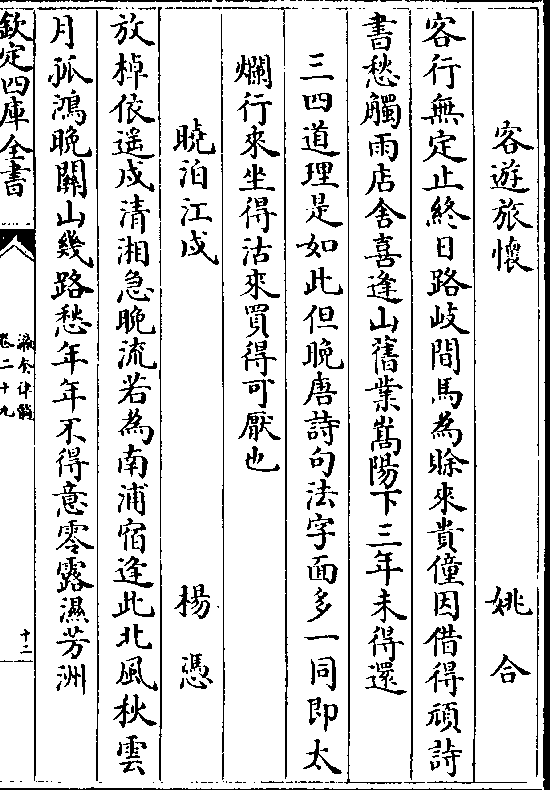 客遊旅懷　姚合
客行無定止終日路岐間馬為賒來貴僮因借得頑詩
書愁觸雨店舍喜逢山舊業嵩陽下三年未得還
三四道理是如此但晚唐詩句法字面多一同即太
爛行來坐得沽來買得可厭也
曉泊江戍　楊憑
放棹依遥戍清湘急晚流若為南浦宿逢此北風秋雲
月孤鴻晚關山幾路愁年年不得意零露濕芳洲
欽定四庫全書
瀛奎律髓
卷二十九
十二